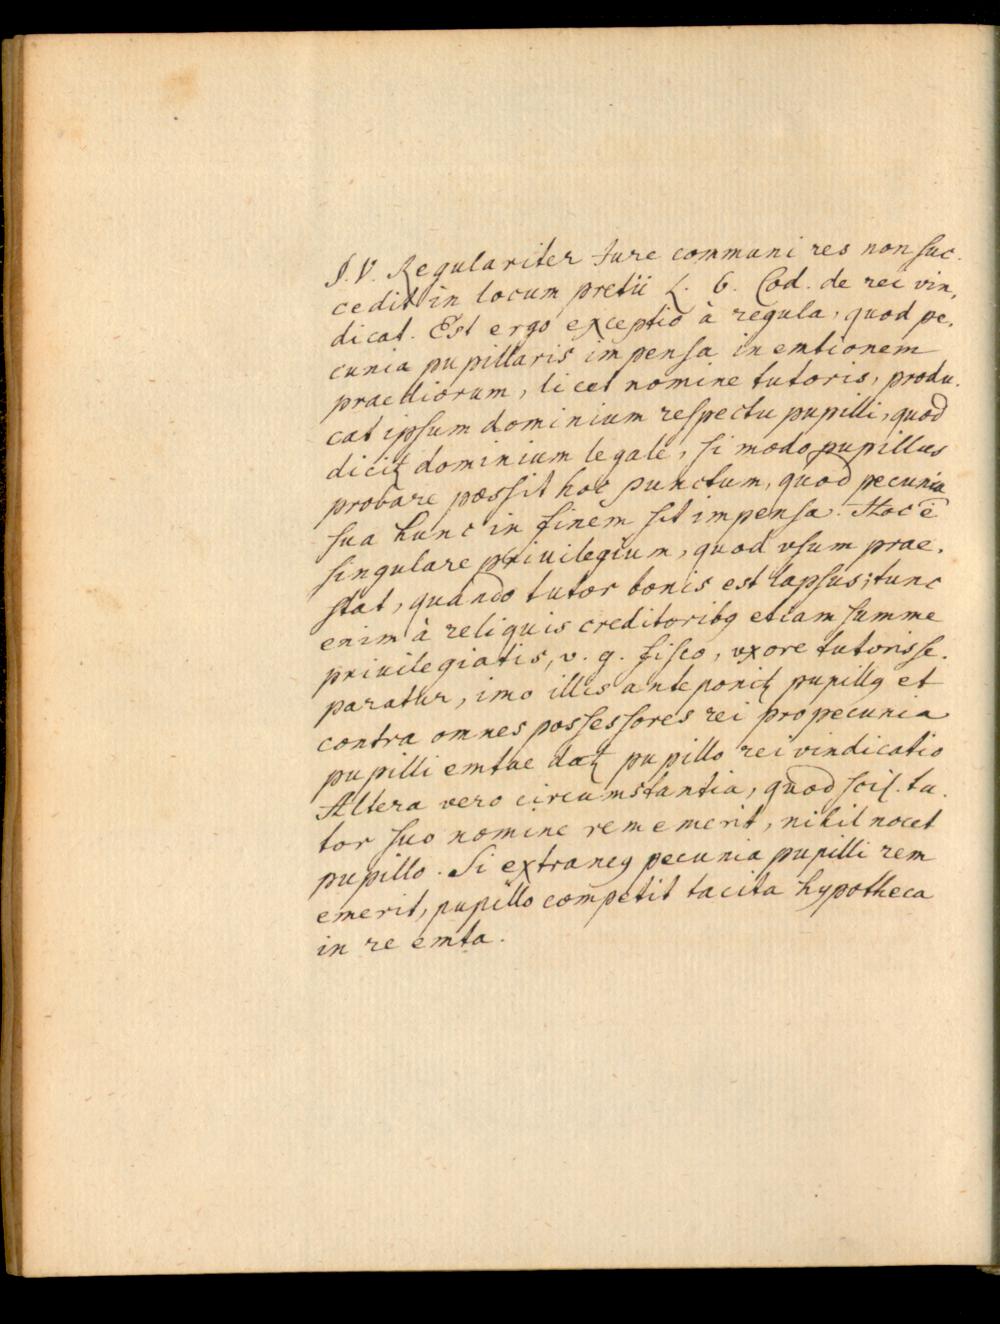 §. V. Regulariter Jure communi res non suc-
cedit in locum pretii L. 6. Cod. de rei vin-
dicat. Est ergo exceptio à regula, quod pe-
cunia pupillaris impensa in emtionem
praediorum, licet nomine tutoris, produ-
cat ipsum dominium respectu pupilli, quod
dicitꝛ dominium legale, si modo pupillus
probare possit hoc punctum, quod pecunia
sua hunc in finem sit impensa. Hoc ē
singulare privilegium, quod vsum prae-
stat, quando tutor bonis est lapsus; tunc
enim à reliquis creditoribꝰ etiam summe
privilegiatis, v. g. fisco, vxore tutoris se-
paratur, imo illis anteponitꝛ pupillꝰ et
contra omnes possessores rei pro pecunia
pupilli emtae datꝛ pupillo rei vindicatio
Altera vero circumstantia, quod scil. tu-
tor suo nomine rem emerit, nihil nocet
pupillo. Si extraneꝰ pecunia pupilli rem
emerit, pupillo competit tacita hypotheca
in re emta.